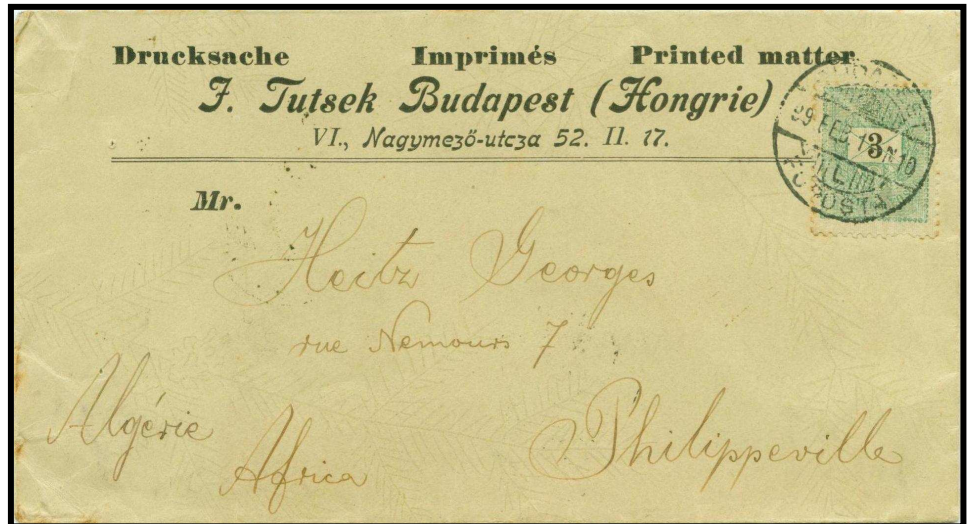 Drucksache Imprimés Printed matter
J. Tutsek Budapest (Hongrie)
VI., Nagymező-utcza 52. II. 17.
3
Mr.
Heitz Georges
rue Nemours 7
Algérie
Africa
Philippeville